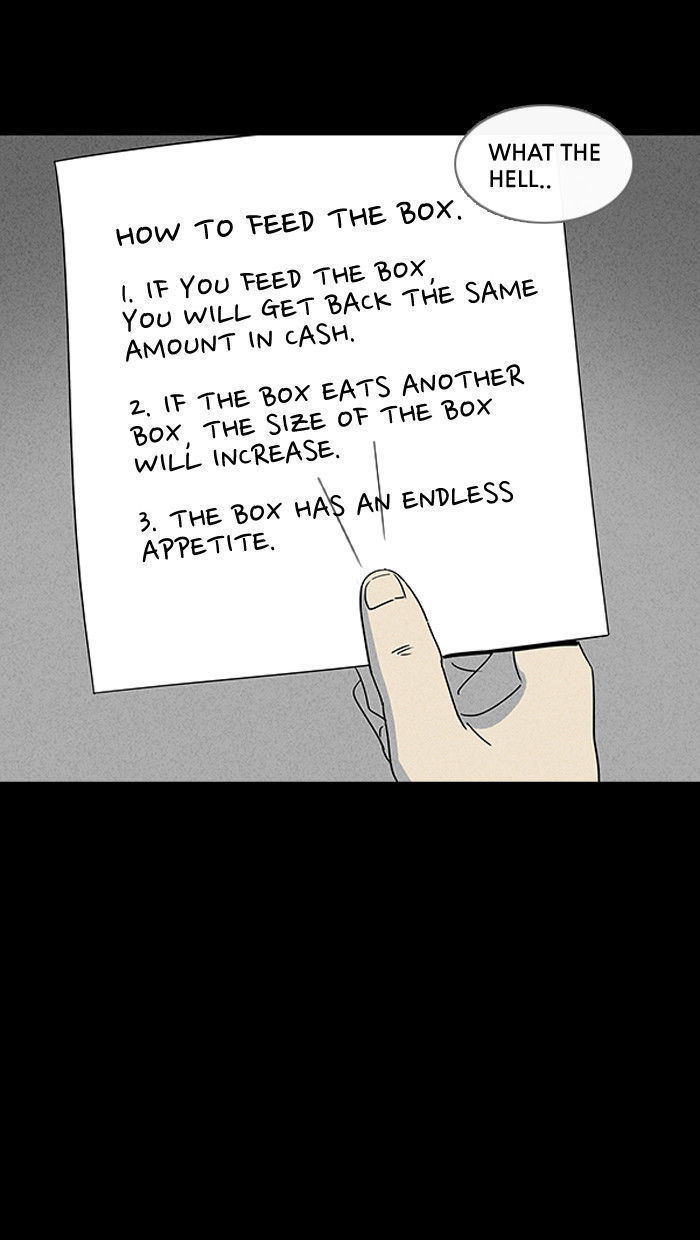 WHAT THE
HELL..
HOW TO FEED THE BOX.
1. IF YOU FEED THE BOX,
YOU WILL GET BACK THE SAME
AMOUNT IN CASH.
2. IF THE BOX EATS ANOTHER
BOX, THE SIZE OF THE BOX
WILL INCREASE.
3. THE BOX HAS AN ENDLESS
APPETITE.